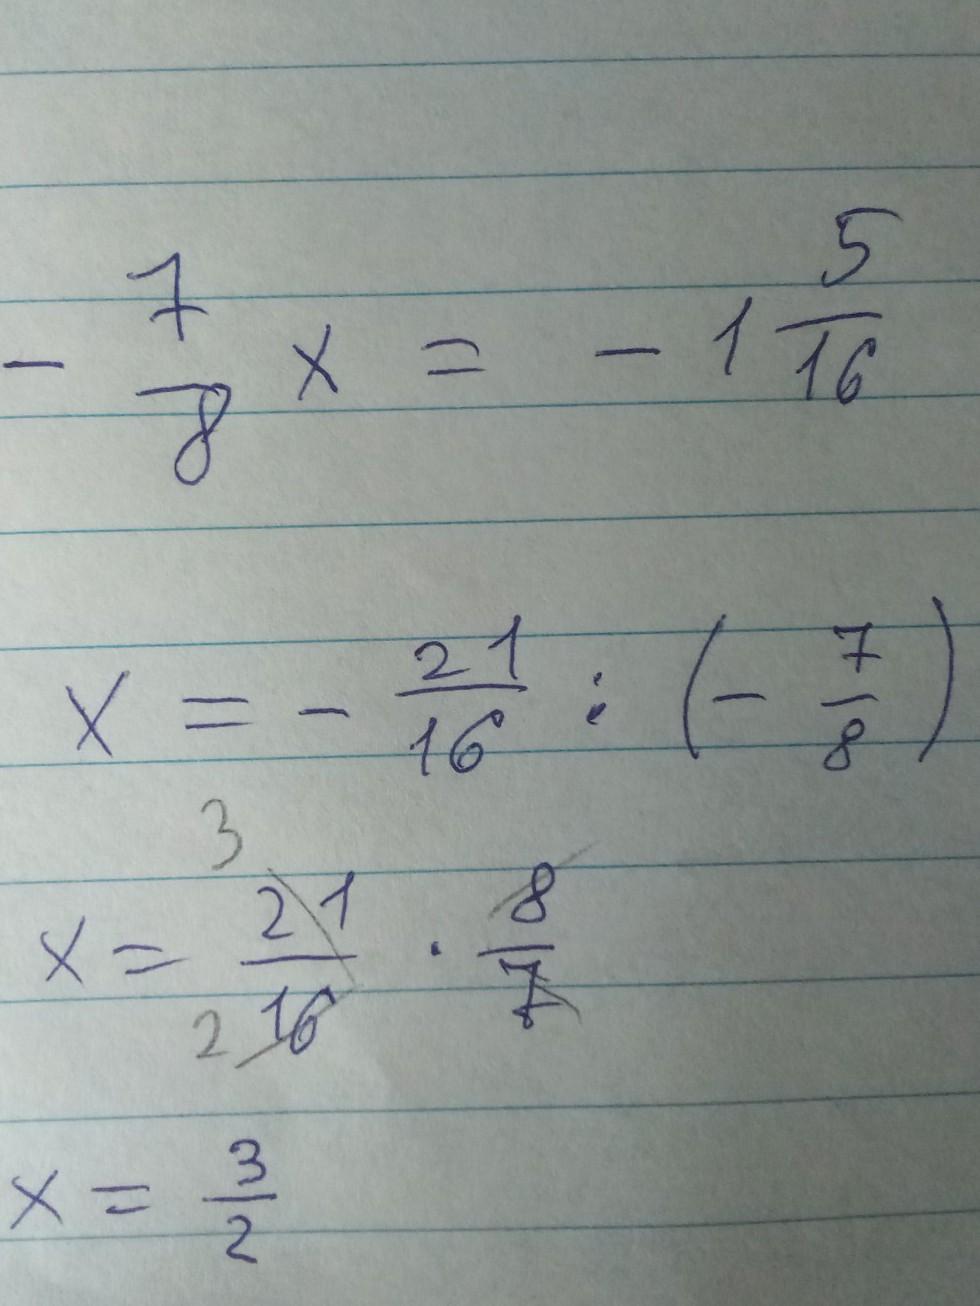 - 7/8 x = - 1 5/16
x = - 21/16 : (- 7/8)
3
x = 21/16 · 8/7
2
x = 3/2